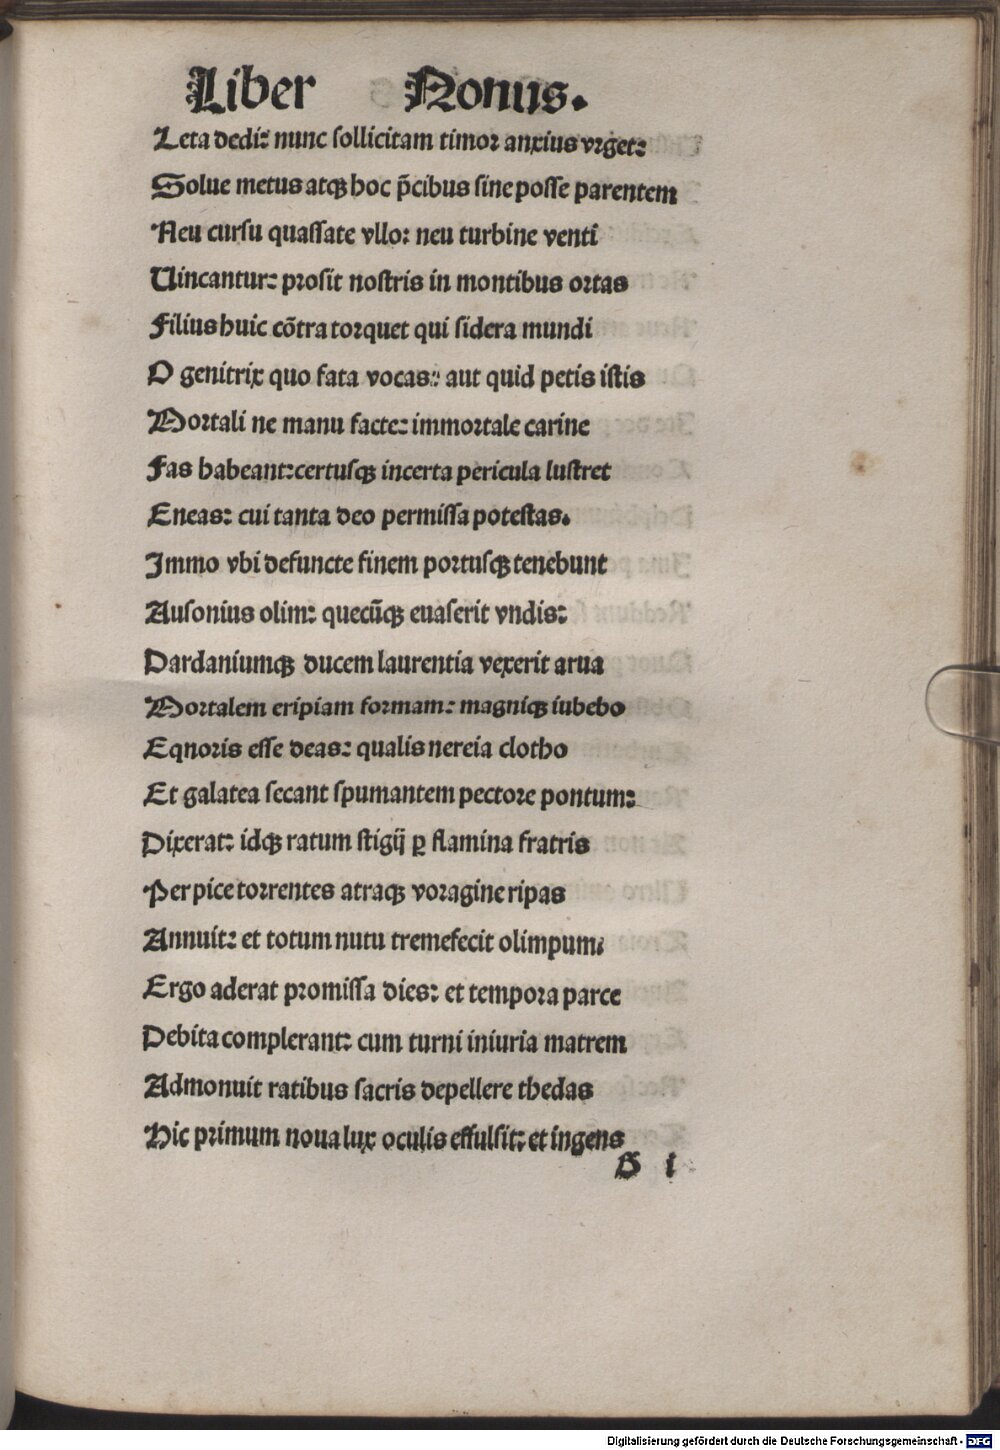 Liber Nonus.
Leta dedi: nunc ſollicitam timoꝛ anxius vꝛget:
Solue metus atqꝫ hoc p̄cibus ſine poſſe parentem
Neu curſu quaſſate vllo: neu turbine venti
Uincantur: pꝛoſit noſtris in montibus oꝛtas
Filius huic cõtra toꝛquet qui ſidera mundi
O genitrix quo fata vocas: aut quid petis iſtis
Moꝛtali ne manu facte: immoꝛtale carine
Fas habeant: certuſqꝫ incerta pericula luſtret
Eneas: cui tanta deo permiſſa poteſtas.
Immo vbi defuncte finem poꝛtuſqꝫ tenebunt
Auſonius olim: quecũqꝫ euaſerit vndis:
Dardaniumqꝫ ducem laurentia vexerit arua
Moꝛtalem eripiam foꝛmam: magniqꝫ iubebo
Eqnoꝛis eſſe deas: qualis nereia clotho
Et galatea ſecant ſpumantem pectoꝛe pontum:
Dixerat: idqꝫ ratum ſtigij ꝑ flamina fratris
Per pice toꝛrentes atraqꝫ voꝛagine ripas
Annuit: et totum nutu tremefecit olimpum:
Ergo aderat pꝛomiſſa dies: et tempoꝛa parce
Debita complerant: cum turni iniuria matrem
Admonuit ratibus ſacris depellere thedas
Hic pꝛimum noua lux oculis effulſit: et ingens
G i
Digitalisierung gefördert durch die Deutsche Forschungsgemeinschaft - DFG